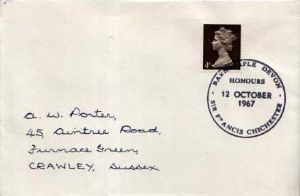 4d
BARNSTAPLE DEVON
HONOURS
12 OCTOBER
1967
SIR FRANCIS CHICHESTER
A. W. Porter,
45 Aintree Road,
Furnace Green,
CRAWLEY, Sussex.